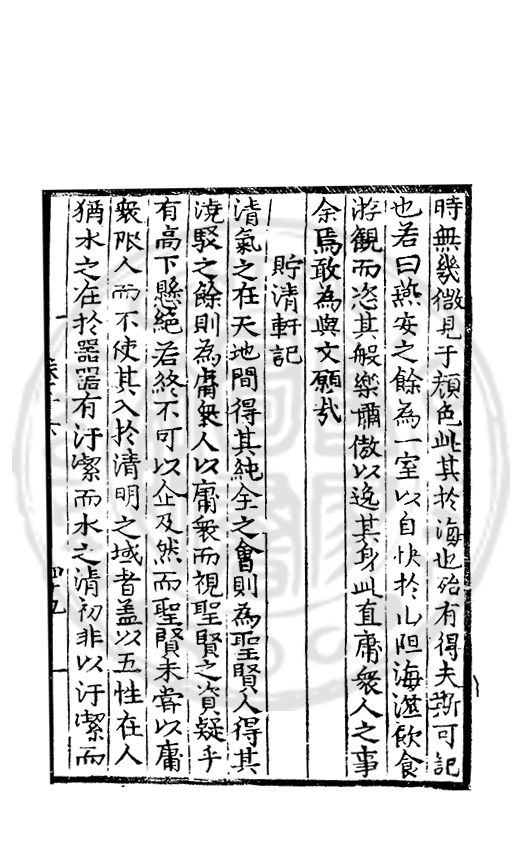 時無幾微見于顏色此其於海也殆有得夫斯可記
也若曰燕安之餘為一室以自快於山陬海澨飲食
游觀而恣其般樂嘯傲以逸其身此直庸衆人之事
余焉敢為與文願哉
貯清軒記
清氣之在天地間得其純全之會則為聖賢人得其
澆駁之餘則為庸衆人以庸衆而視聖賢之資疑乎
有高下懸絕若終不可以企及然而聖賢未嘗以庸
衆限人而不使其入於清明之域者盖以五性在人
猶水之在於器器有汙潔而水之清初非以汙潔而
卷十六
四十九